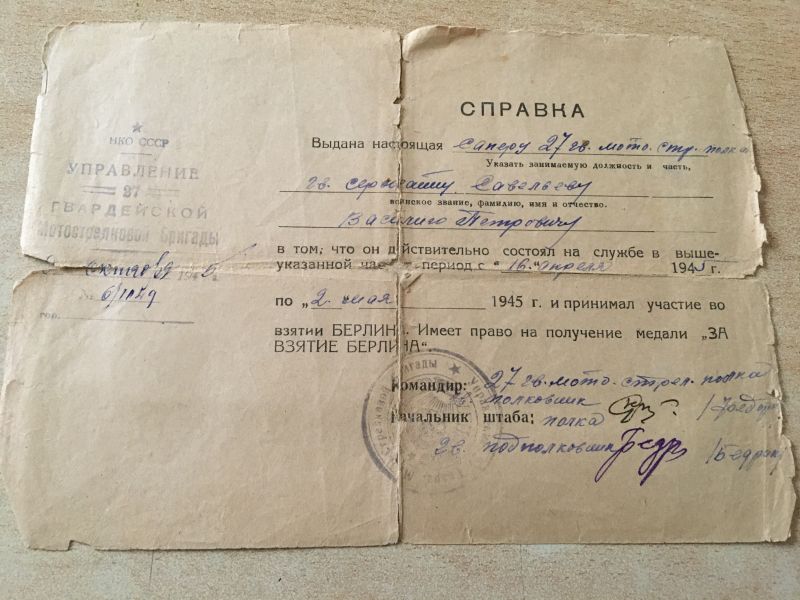 НКО СССР
УПРАВЛЕНИЕ
27
ГВАРДЕЙСКОЙ
Мотострелковой Бригады
октября 1945 г.
№
гор.
СПРАВКА
Выдана настоящая Саперу 27 гв. мото. стр. полка
Указать занимаемую должность и часть,
гв. сержанту Савельеву
воинское звание, фамилию, имя и отчество.
Василию Петровичу
в том, что он действительно состоял на службе в выше-
указанной период с "16" апреля 1945 г.
по „2" мая 1945 г. и принимал участие во
взятии БЕРЛИНА. Имеет право на получение медали „ЗА
ВЗЯТИЕ БЕРЛИНА".
Командир: 27 гв. мото. стрел. полка
полковник
Начальник штаба: полка
гв. подполковник